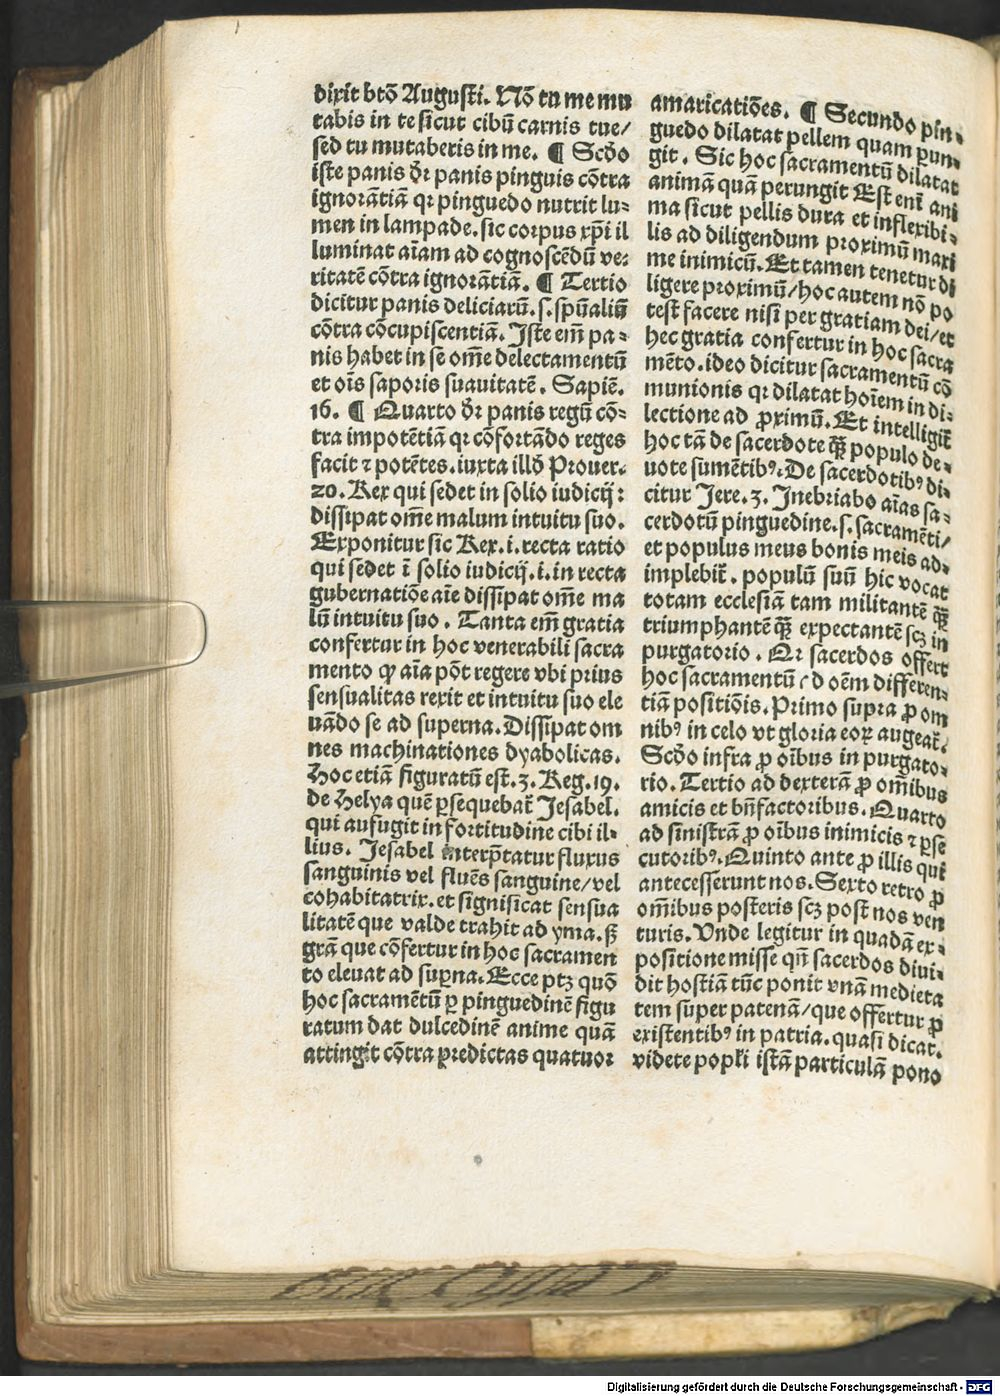 dixit btō Augusti. Nō tu me mu
tabis in te sicut cibū carnis tue/
sed tu mutaberis in me. ¶ Scđo
iste panis dr̄ panis pinguis cōtra
ignorātiā qꝛ pinguedo nutrit lu⸗
men in lampade. sic corpus xp̄i il
luminat aīam ad cognoscēdū ve⸗
ritatē cōtra ignorātiā. ¶ Tertio
dicitur panis deliciarū. s. spūaliū
cōtra cōcupiscentiā. Iste em̄ pa⸗
nis habet in se om̄e delectamentū
et oīs saporis suauitatē. Sapiē.
16. ¶ Quarto dr̄ panis regū cō⸗
tra impotētiā qꝛ cōfortādo reges
facit ⁊ potētes. iuxta illđ Prouer.
20. Rex qui sedet in solio iudicij:
dissipat om̄e malum intuitu suo.
Exponitur sic Rex. i. recta ratio
qui sedet ī solio iudicij. i. in recta
gubernatiōe aīe dissipat om̄e ma
lū intuitu suo. Tanta em̄ gratia
confertur in hoc venerabili sacra
mento ꝙ aīa pōt regere vbi prius
sensualitas rexit et intuitu suo ele
uādo se ad superna. Dissipat om
nes machinationes dyabolicas.
Hoc etiā figuratū est. 3. Reg. 19.
de Helya quē ꝑsequebat̄ Jesabel.
qui aufugit in fortitudine cibi il⸗
lius. Jesabel interp̄tatur fluxus
sanguinis vel fluēs sanguine/vel
cohabitatrix. et significat sensua
litatē que valde trahit ad yma. sꝫ
grā que cōfertur in hoc sacramen
to eleuat ad suꝑna. Ecce ptꝫ quō
hoc sacramētū ꝑ pinguedinē figu
ratum dat dulcedinē anime quā
attingit cōtra predictas quatuor
amaricatiōes. ¶ Secundo pin⸗
guedo dilatat pellem quam ꝑun⸗
git. Sic hoc sacramentū dilatat
animā quā perungit Est eni ani
ma sicut pellis dura et inflexibi⸗
lis ad diligendum proximū maxi
me inimicū. Et tamen tenetur di
ligere proximū/hoc autem nō po
test facere nisi per gratiam dei/et
hec gratia confertur in hoc sacra
mēto. ideo dicitur sacramentū cō
munionis qꝛ dilatat hoīem in di⸗
lectione ad ꝓximū. Et intelligit̄
hoc tā de sacerdote ꝙꝫ populo de⸗
uote sumētibꝰ. De sacerdotibꝰ di⸗
citur Jere. 3. Inebriabo aīas sa⸗
cerdotū pinguedine. s. sacramēti/
et populus meus bonis meis ad⸗
implebit̄. populū suū hic vocat
totam ecclesiā tam militantē ꝙꝫ
triumphantē ꝙꝫ expectantē scꝫ in
purgatorio. Qꝛ sacerdos offert
hoc sacramentū ẜđ oēm differen⸗
tiā positiōis. Primo supra ꝓ om
nibꝰ in celo vt gloria eoꝝ augeat̄.
Scđo infra ꝓ oībus in purgato⸗
rio. Tertio ad dexterā ꝓ om̄ibus
amicis et bn̄factoribus. Quarto
ad sinistrā ꝓ oībus inimicis ⁊ ꝑse
cutoribꝰ. Quinto ante ꝓ illis qui
antecesserunt nos. Sexto retro ꝓ
om̄ibus posteris scꝫ post nos ven
turis. Unde legitur in quadā ex⸗
positione misse qn̄ sacerdos diui⸗
dit hostiā tūc ponit vnā medieta
tem super patenā/que offertur ꝓ
existentibꝰ in patria. quasi dicat.
videte popłi istā particulā pono
Digitalisierung gefördert durch die Deutsche Forschungsgemeinschaft - DFG